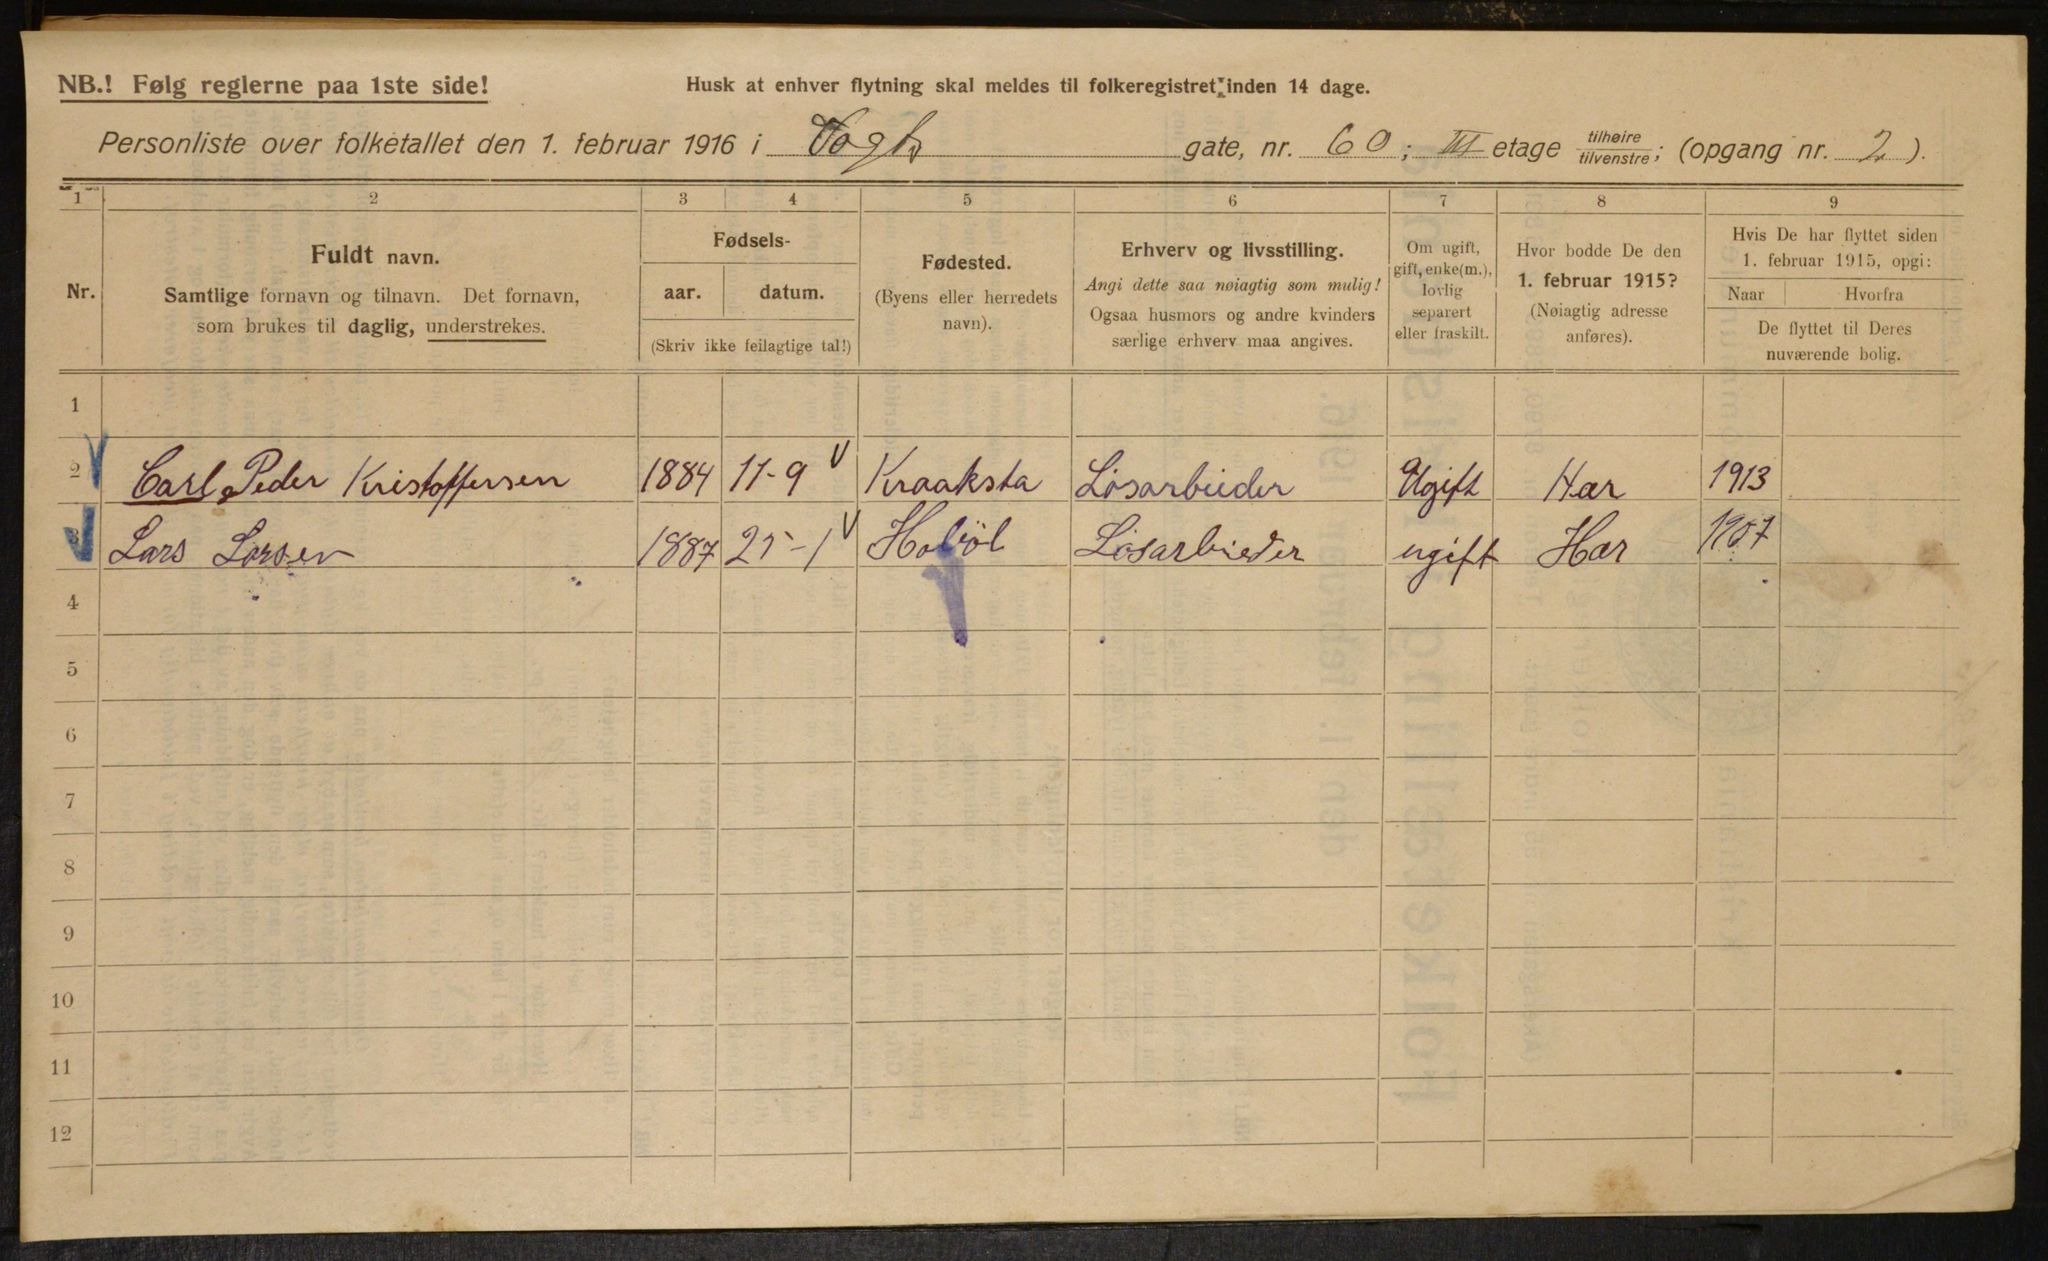 NB.! Følg reglerne paa 1ste side!
Husk at enhver flytning skal meldes til folkeregistret inden 14 dage.
Personliste over folketallet den 1. februar 1916 i Vogts gate, nr. 60; III etage tilhøire/tilvenstre; (opgang nr. 2).
1 2 3 4 5 6 7 8 9
Nr.
Fuldt navn.
Samtlige fornavn og tilnavn. Det fornavn,
som brukes til daglig, understrekes.
Fødsels-
aar. datum.
(Skriv ikke feilagtige tal!)
Fødested.
(Byens eller herredets
navn).
Erhverv og livsstilling.
Angi dette saa nøiagtig som mulig!
Ogsaa husmors og andre kvinders
særlige erhverv maa angives.
Om ugift,
gift, enke(m.),
lovlig
separert
eller fraskilt.
Hvor bodde De den
1. februar 1915?
(Nøiagtig adresse
anføres).
Hvis De har flyttet siden
1. februar 1915, opgi:
Naar Hvorfra
De flyttet til Deres
nuværende bolig.
1
2 Carl Peder Kristoffersen 1884 11-9 Kraaksta Løsarbeider Ugift Hær 1913
3 Lars Larsen 1887 25-1 Hobøl Løsarbieder ugift Hær 1907
4
5
6
7
8
9
10
11
12